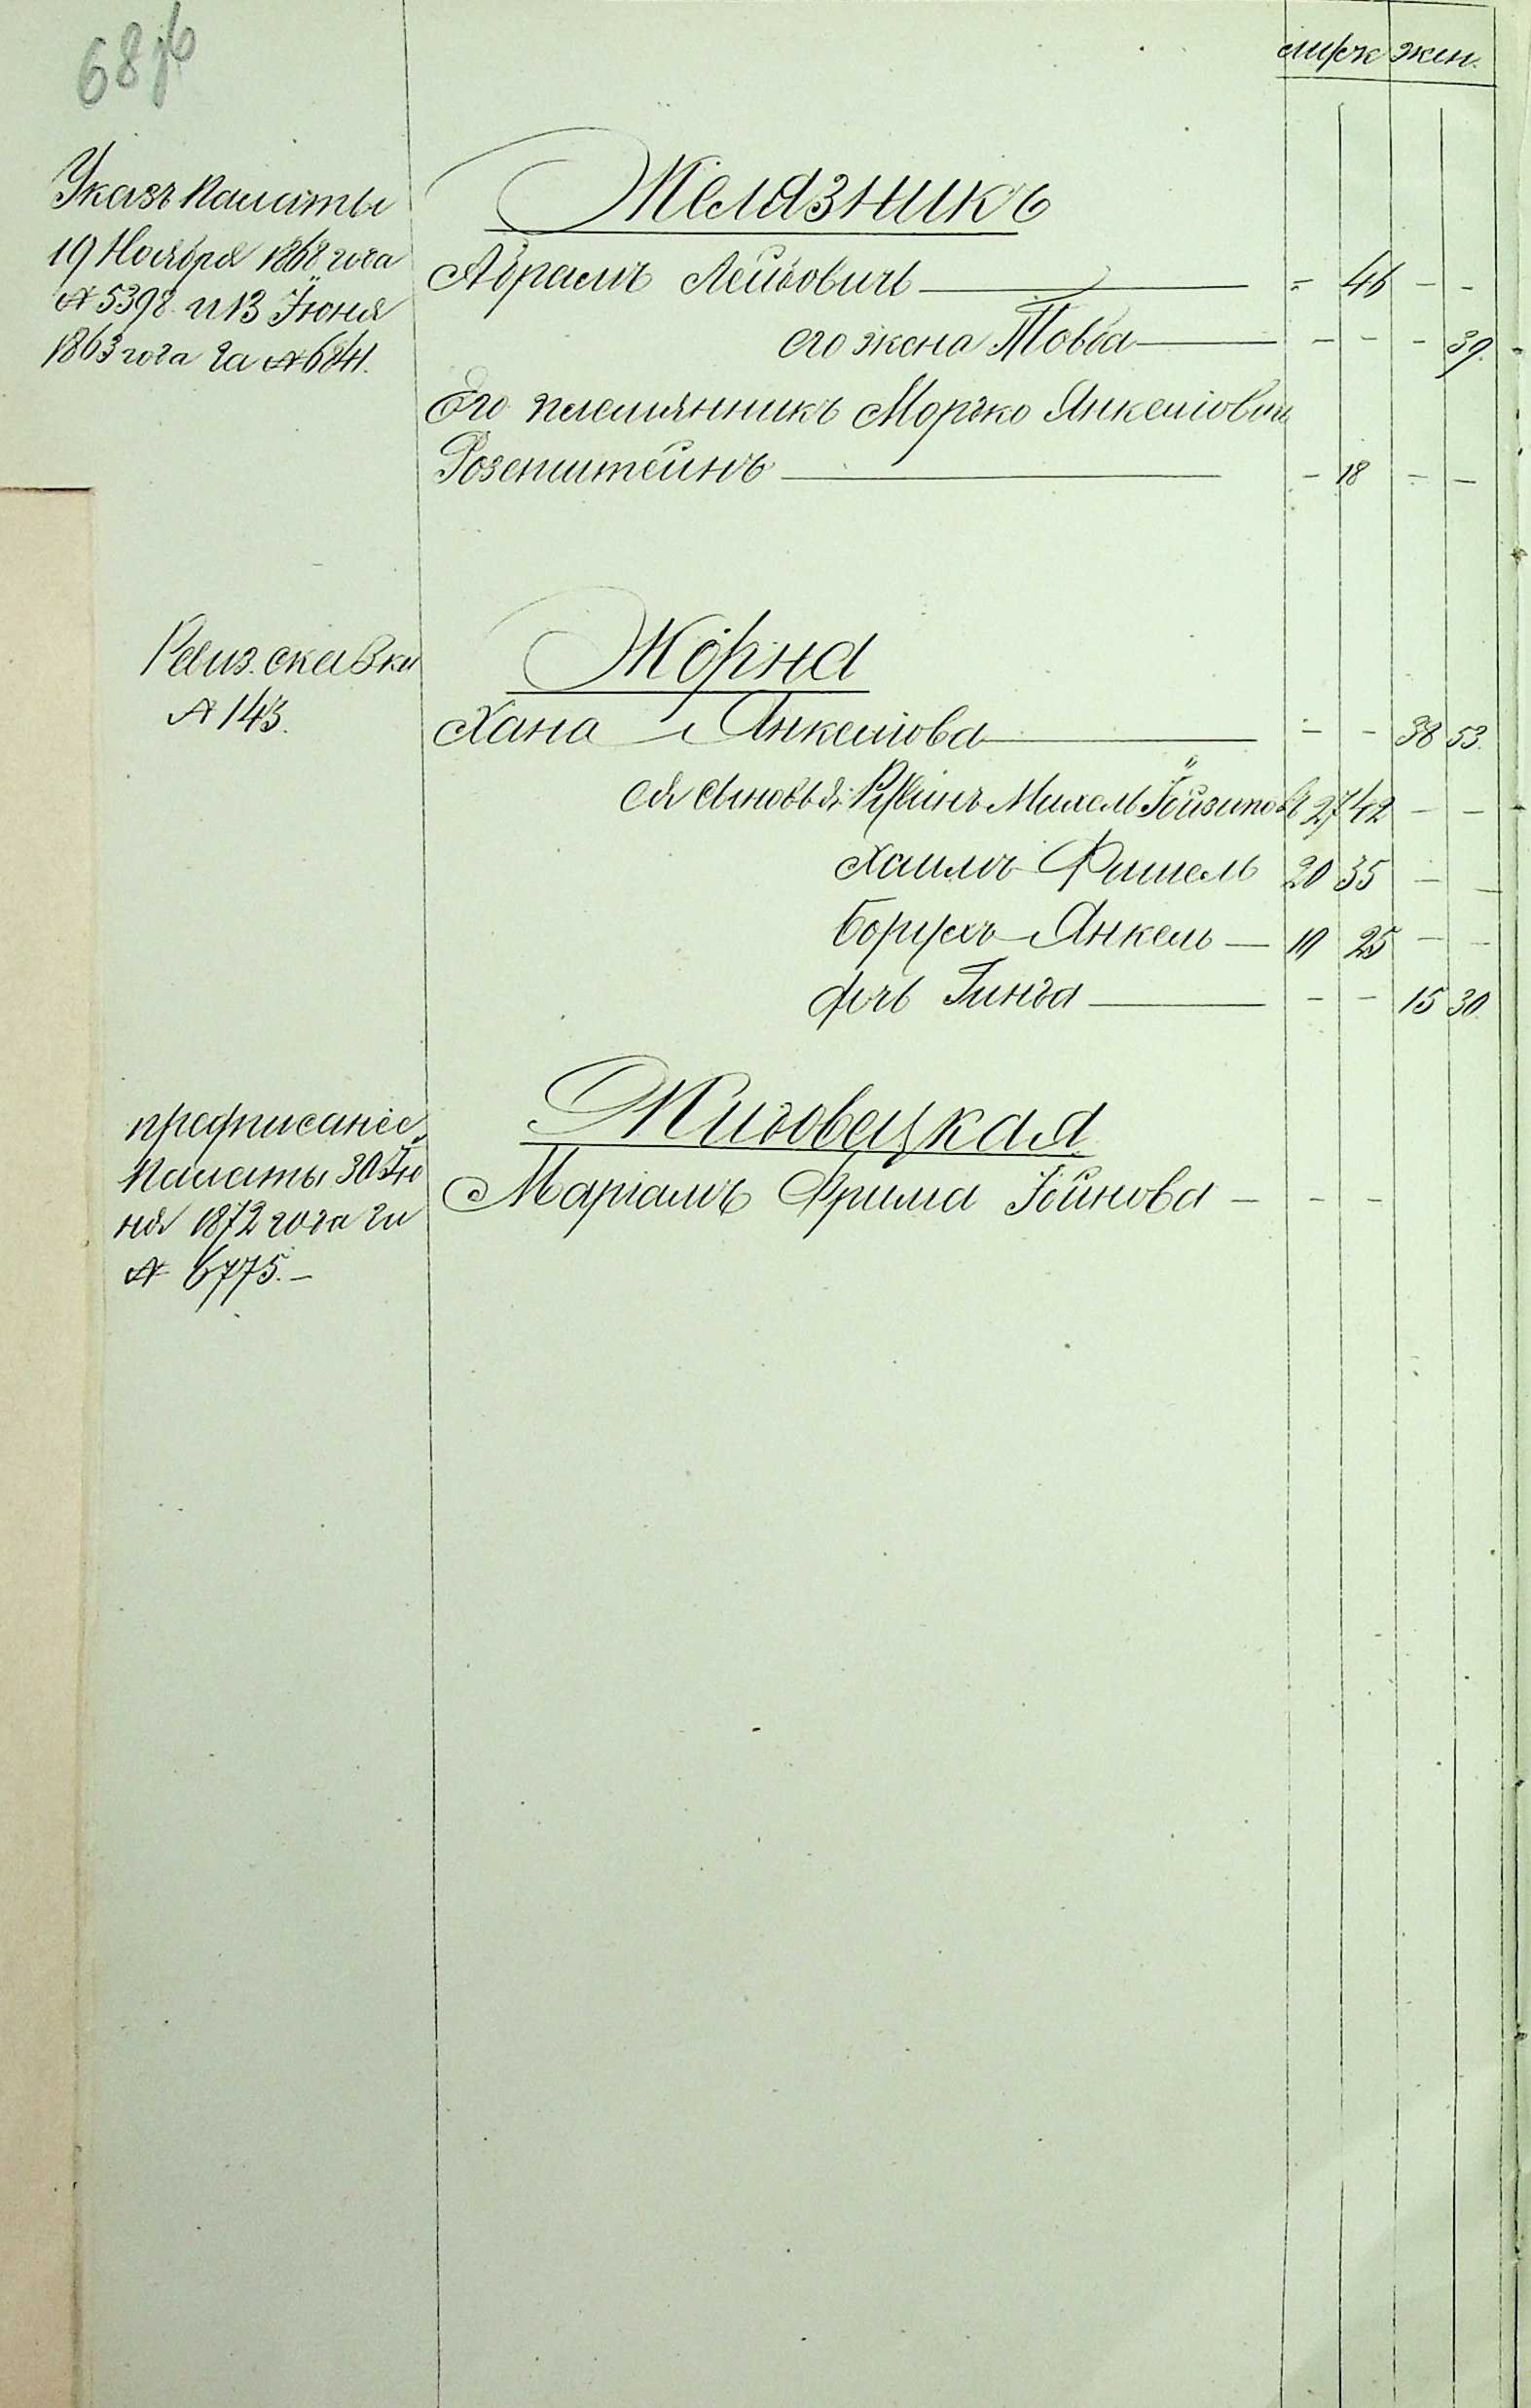 68 об
муж жен.
Указъ Палаты
19 Ноября 1868 года
№ 5398 и 13 Іюня
1863 года за № 6841.
Желязникъ
Абрамъ Лейбовичъ — 46 - -
его жена Товба - - - 39.
Его племянникъ Моргко Янкелiович
Розенштейнъ - 18 - -
Ревиз. сказки
№ 143.
Жорна
Хана Янкелiова - - 38 53.
ея сыновья: Рувинъ Михель 27 42 - -
Хаимъ Фишель 20 35 - -
Борухъ Янкель — 10 25 - -
дочь Гинда - - 15 30
предписаніе
Палаты 30 Ію
ня 1872 года за
№ 6775.-
Жидовецкая
Маріамъ Фрима Іойнова - - -